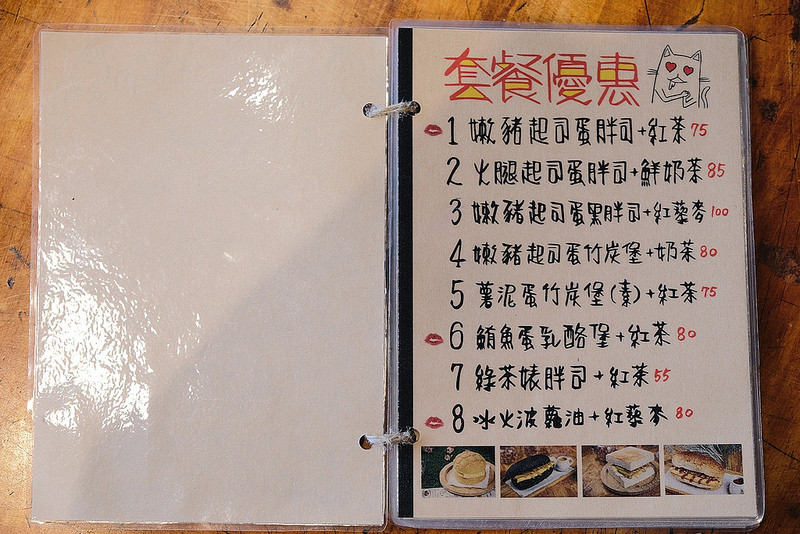 套餐優惠
1 嫩豬起司蛋胖司+紅茶 75
2 火腿起司蛋胖司+鮮奶茶 85
3 嫩豬起司蛋黑胖司+紅藜麥 100
4 嫩豬起司蛋竹炭堡+奶茶 80
5 薯泥蛋竹炭堡(素)+紅茶 75
6 鮪魚蛋乳酪堡+紅茶 80
7 綠茶婊胖司+紅茶 55
8 冰火波蘿油+紅藜麥 80